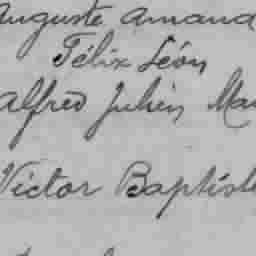 Auguste Amand
Félix Léon
Alfred Julien
Victor Baptiste